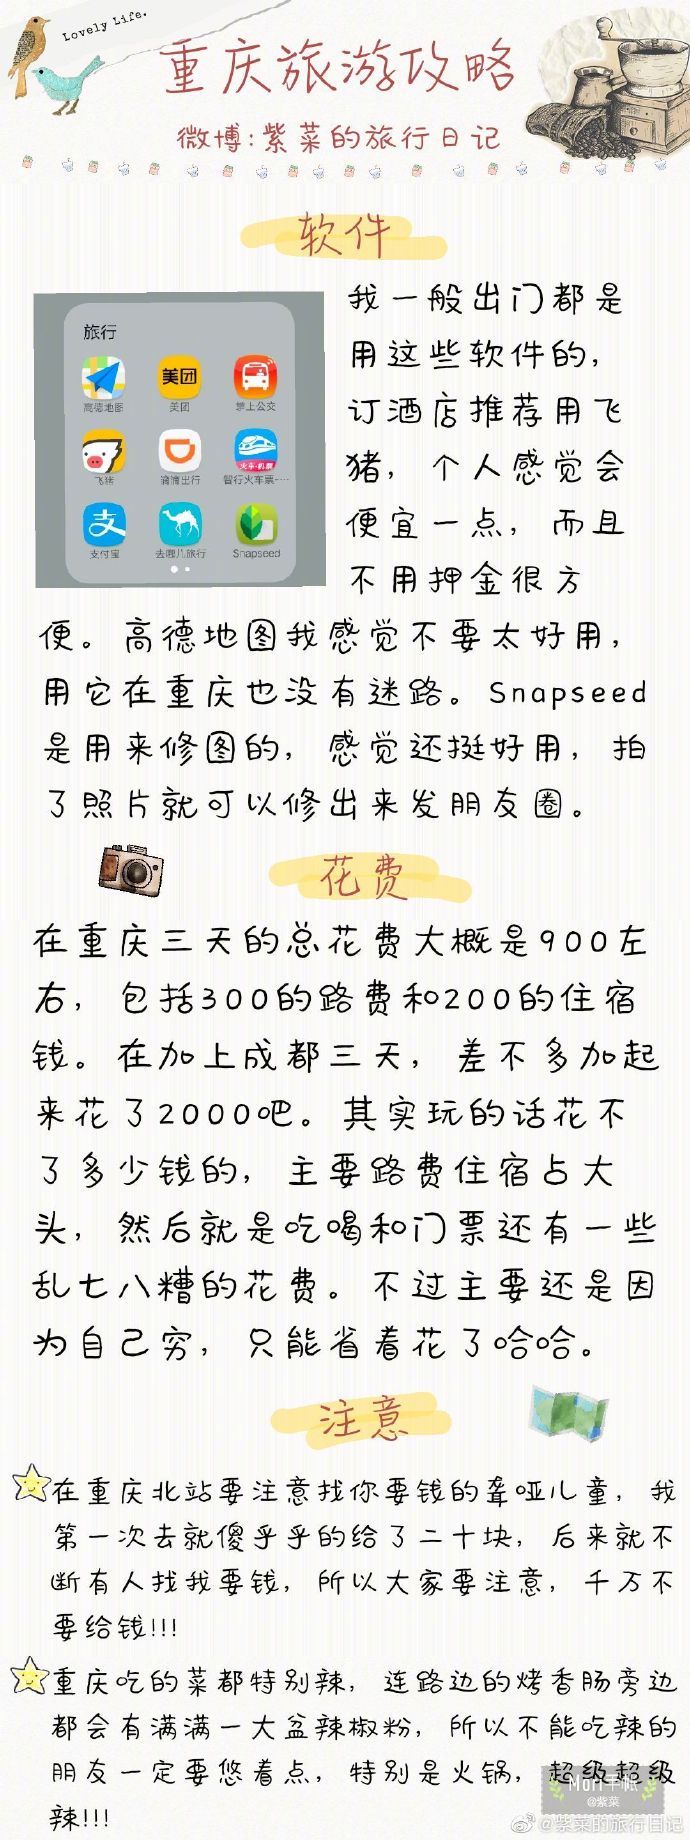 Lovely Life.
重庆旅游攻略
微博:紫菜的旅行日记
软件
旅行
高德地图
美团
美团
掌上公交
飞猪
滴滴出行
火车·机票
智行火车票-…
支
支付宝
去哪儿旅行
Snapseed
我一般出门都是
用这些软件的,
订酒店推荐用飞
猪,个人感觉会
便宜一点,而且
不用押金很方
便。高德地图我感觉不要太好用,
用它在重庆也没有迷路。Snapseed
是用来修图的,感觉还挺好用,拍
了照片就可以修出来发朋友圈。
花费
在重庆三天的总花费大概是900左
右,包括300的路费和200的住宿
钱。在加上成都三天,差不多加起
来花了2000吧。其实玩的话花不
了多少钱的,主要路费住宿占大
头,然后就是吃喝和门票还有一些
乱七八糟的花费。不过主要还是因
为自己穷,只能省着花了哈哈。
注意
在重庆北站要注意找你要钱的聋哑儿童,我
第一次去就傻乎乎的给了二十块,后来就不
断有人找我要钱,所以大家要注意,千万不
要给钱!!!
重庆吃的菜都特别辣,连路边的烤香肠旁边
都会有满满一大盆辣椒粉,所以不能吃辣的
朋友一定要悠着点,特别是火锅,超级超级
辣!!!
Mori手帐
@紫菜
@紫菜的旅行日记